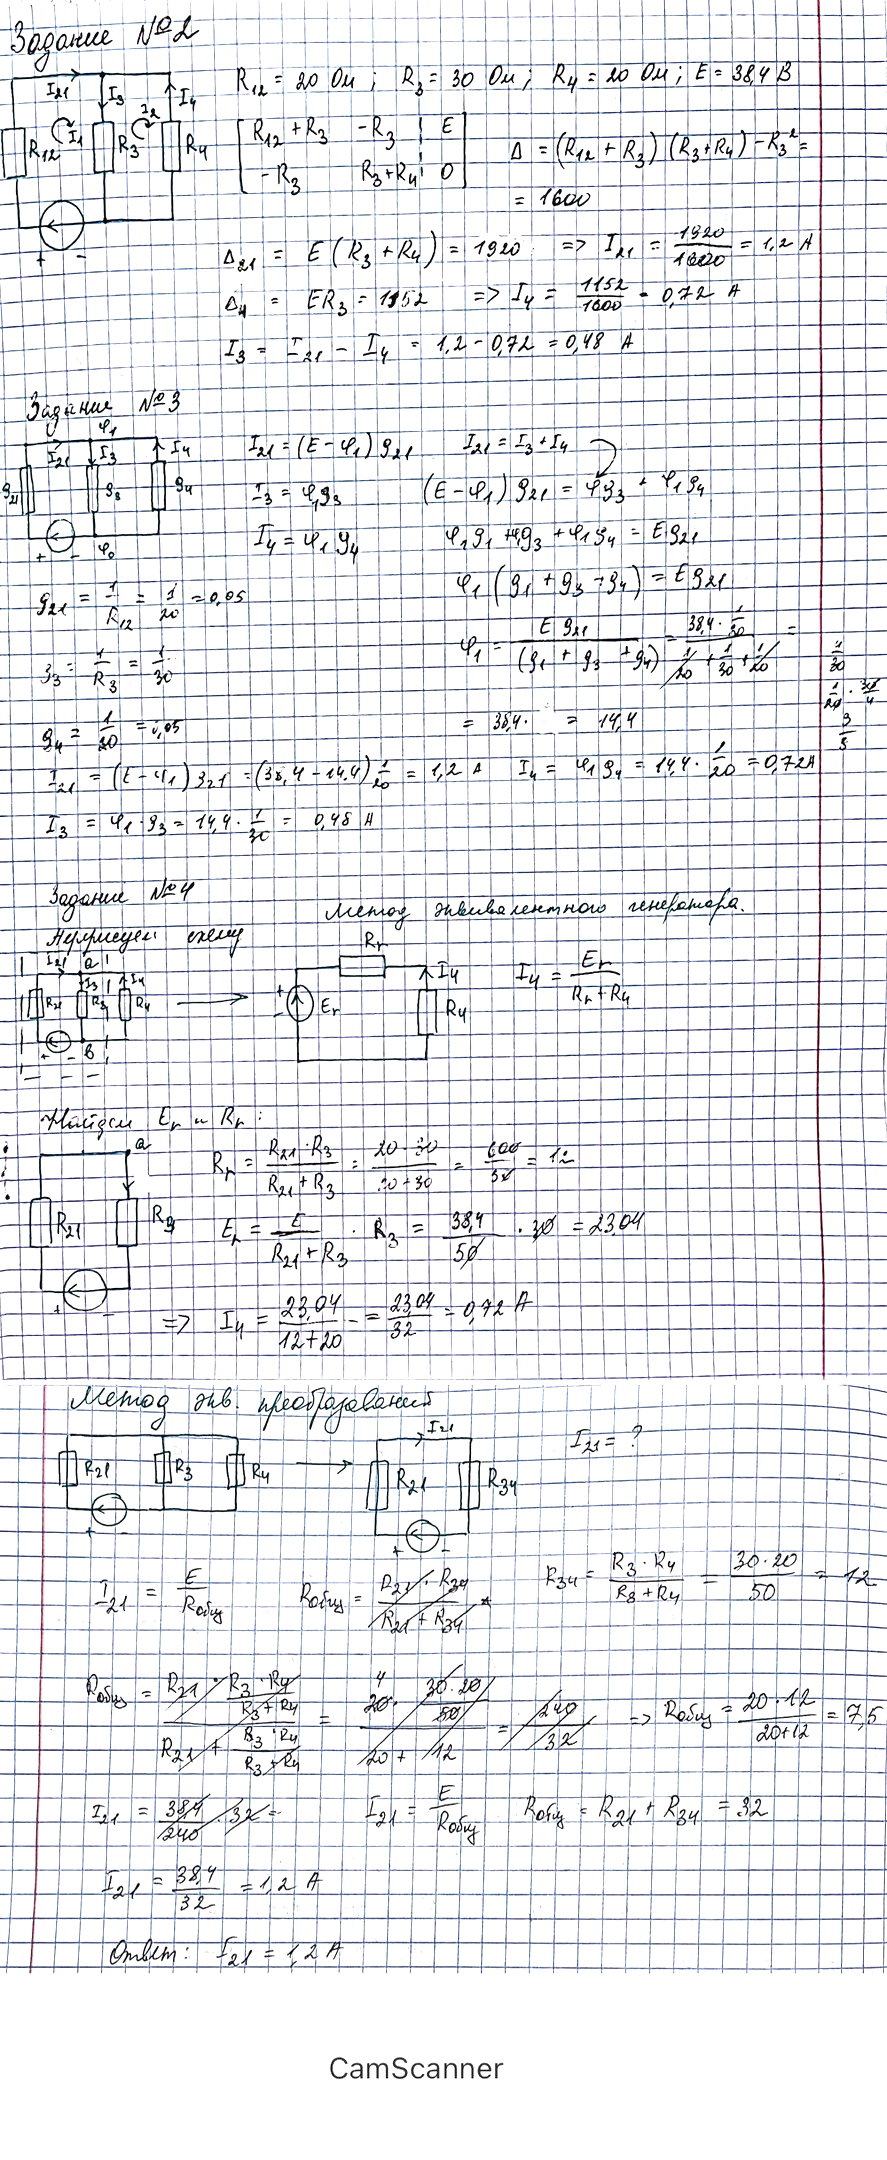 Задание №2
R12 = 20 Ом ; R3 = 30 Ом ; R4 = 20 Ом ; E = 38,4 В
I21 I3 I4 I1 I2 R12 R3 R4 + -
[ R12 + R3 -R3 | E
-R3 R3+R4 | 0 ]
Δ = (R12 + R3) (R3+R4) - R3² =
= 1600
Δ21 = E (R3 + R4) = 1920 => I21 = 1920/1600 = 1,2 А
Δ4 = ER3 = 1152 => I4 = 1152/1600 = 0,72 А
I3 = I21 - I4 = 1,2 - 0,72 = 0,48 А
Задание №3
φ1 I21 I3 I4 g21 g3 g4 + - φ0
I21 = (E - φ1) g21 I21 = I3 + I4
I3 = φ1g3 (E - φ1) g21 = φg3 + φ1g4
I4 = φ1 g4 φ1g1 + φ1g3 + φ1g4 = Eg21
φ1 (g1 + g3 + g4) = Eg21
g21 = 1/R12 = 1/20 = 0,05
φ1 = E g21/(g1 + g3 + g4) = 38,4 · 1/30 / 1/20 + 1/30 + 1/20 =
g3 = 1/R3 = 1/30
= 38,4 · = 14,4
g4 = 1/20 = 0,05
I21 = (E - φ1) g21 = (38,4 - 14,4) 1/20 = 1,2 А I4 = φ1 g4 = 14,4 · 1/20 = 0,72А
I3 = φ1 · g3 = 14,4 · 1/30 = 0,48 А
Задание №4
Метод эквивалентного генератора.
схему
I21 a I3 I4 R21 R3 R4 + - в
Rг + - Eг I4 R4
I4 = Eг/(Rг + R4)
Найдем Eг и Rг :
a R21 R3 + -
Rг = R21 · R3/(R21 + R3) = 20 · 30/(20 + 30) = 600/50 = 12
Eг = E/(R21 + R3) · R3 = 38,4/50 · 30 = 23,04
=> I4 = 23,04/(12 + 20) = 23,04/32 = 0,72 А
Метод экв. преобразований
R21 R3 R4 + - I21 R21 R34 + -
I21 = ?
I21 = E/Rобщ Rобщ = R21 · R34/(R21 + R34) R34 = R3 · R4/(R3 + R4) = 30 · 20/50 = 12
Rобщ = R21 · R3 · R4/(R3 + R4) / R21 + R3 · R4/(R3 + R4) = 20 · 30 · 20/50 / 20 + 12 = 240/32 => Rобщ = 20 · 12/(20+12) = 7,5
I21 = 38,4/240 · 32 = I21 = E/Rобщ Rобщ = R21 + R34 = 32
I21 = 38,4/32 = 1,2 А
Ответ: I21 = 1,2 А
CamScanner